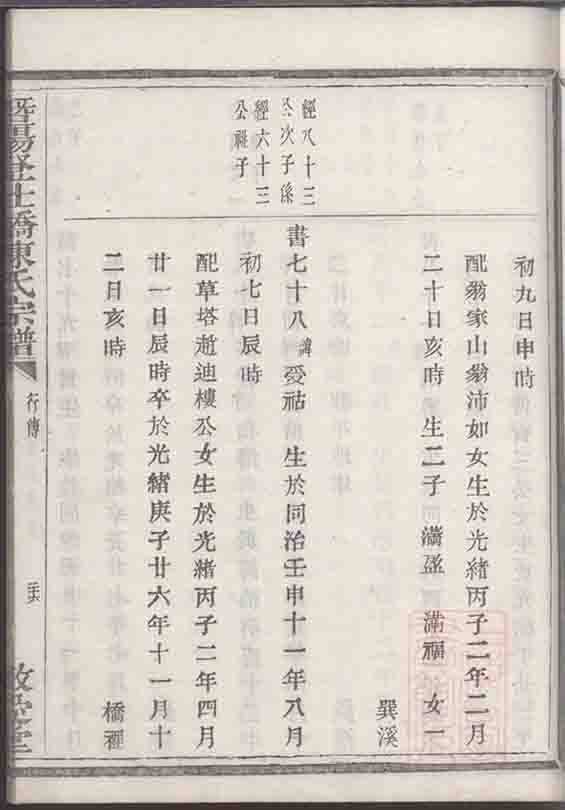 初九日申時
配翁家山翁沛如女生於光緒丙子二年二月
二十日亥時 生二子 滿盈 滿禰 女一
巽溪
經八十三
公次子係
經六十三
公繼子
書七十八諱愛祜 生於同治壬申十一年八月
初七日辰時
配草塔趙迪樓公女生於光緒丙子二年四月
廿一日辰時卒於光緒庚子廿六年十一月十
二日亥時
橋裡
暨陽
橋陳氏宗譜
行傳